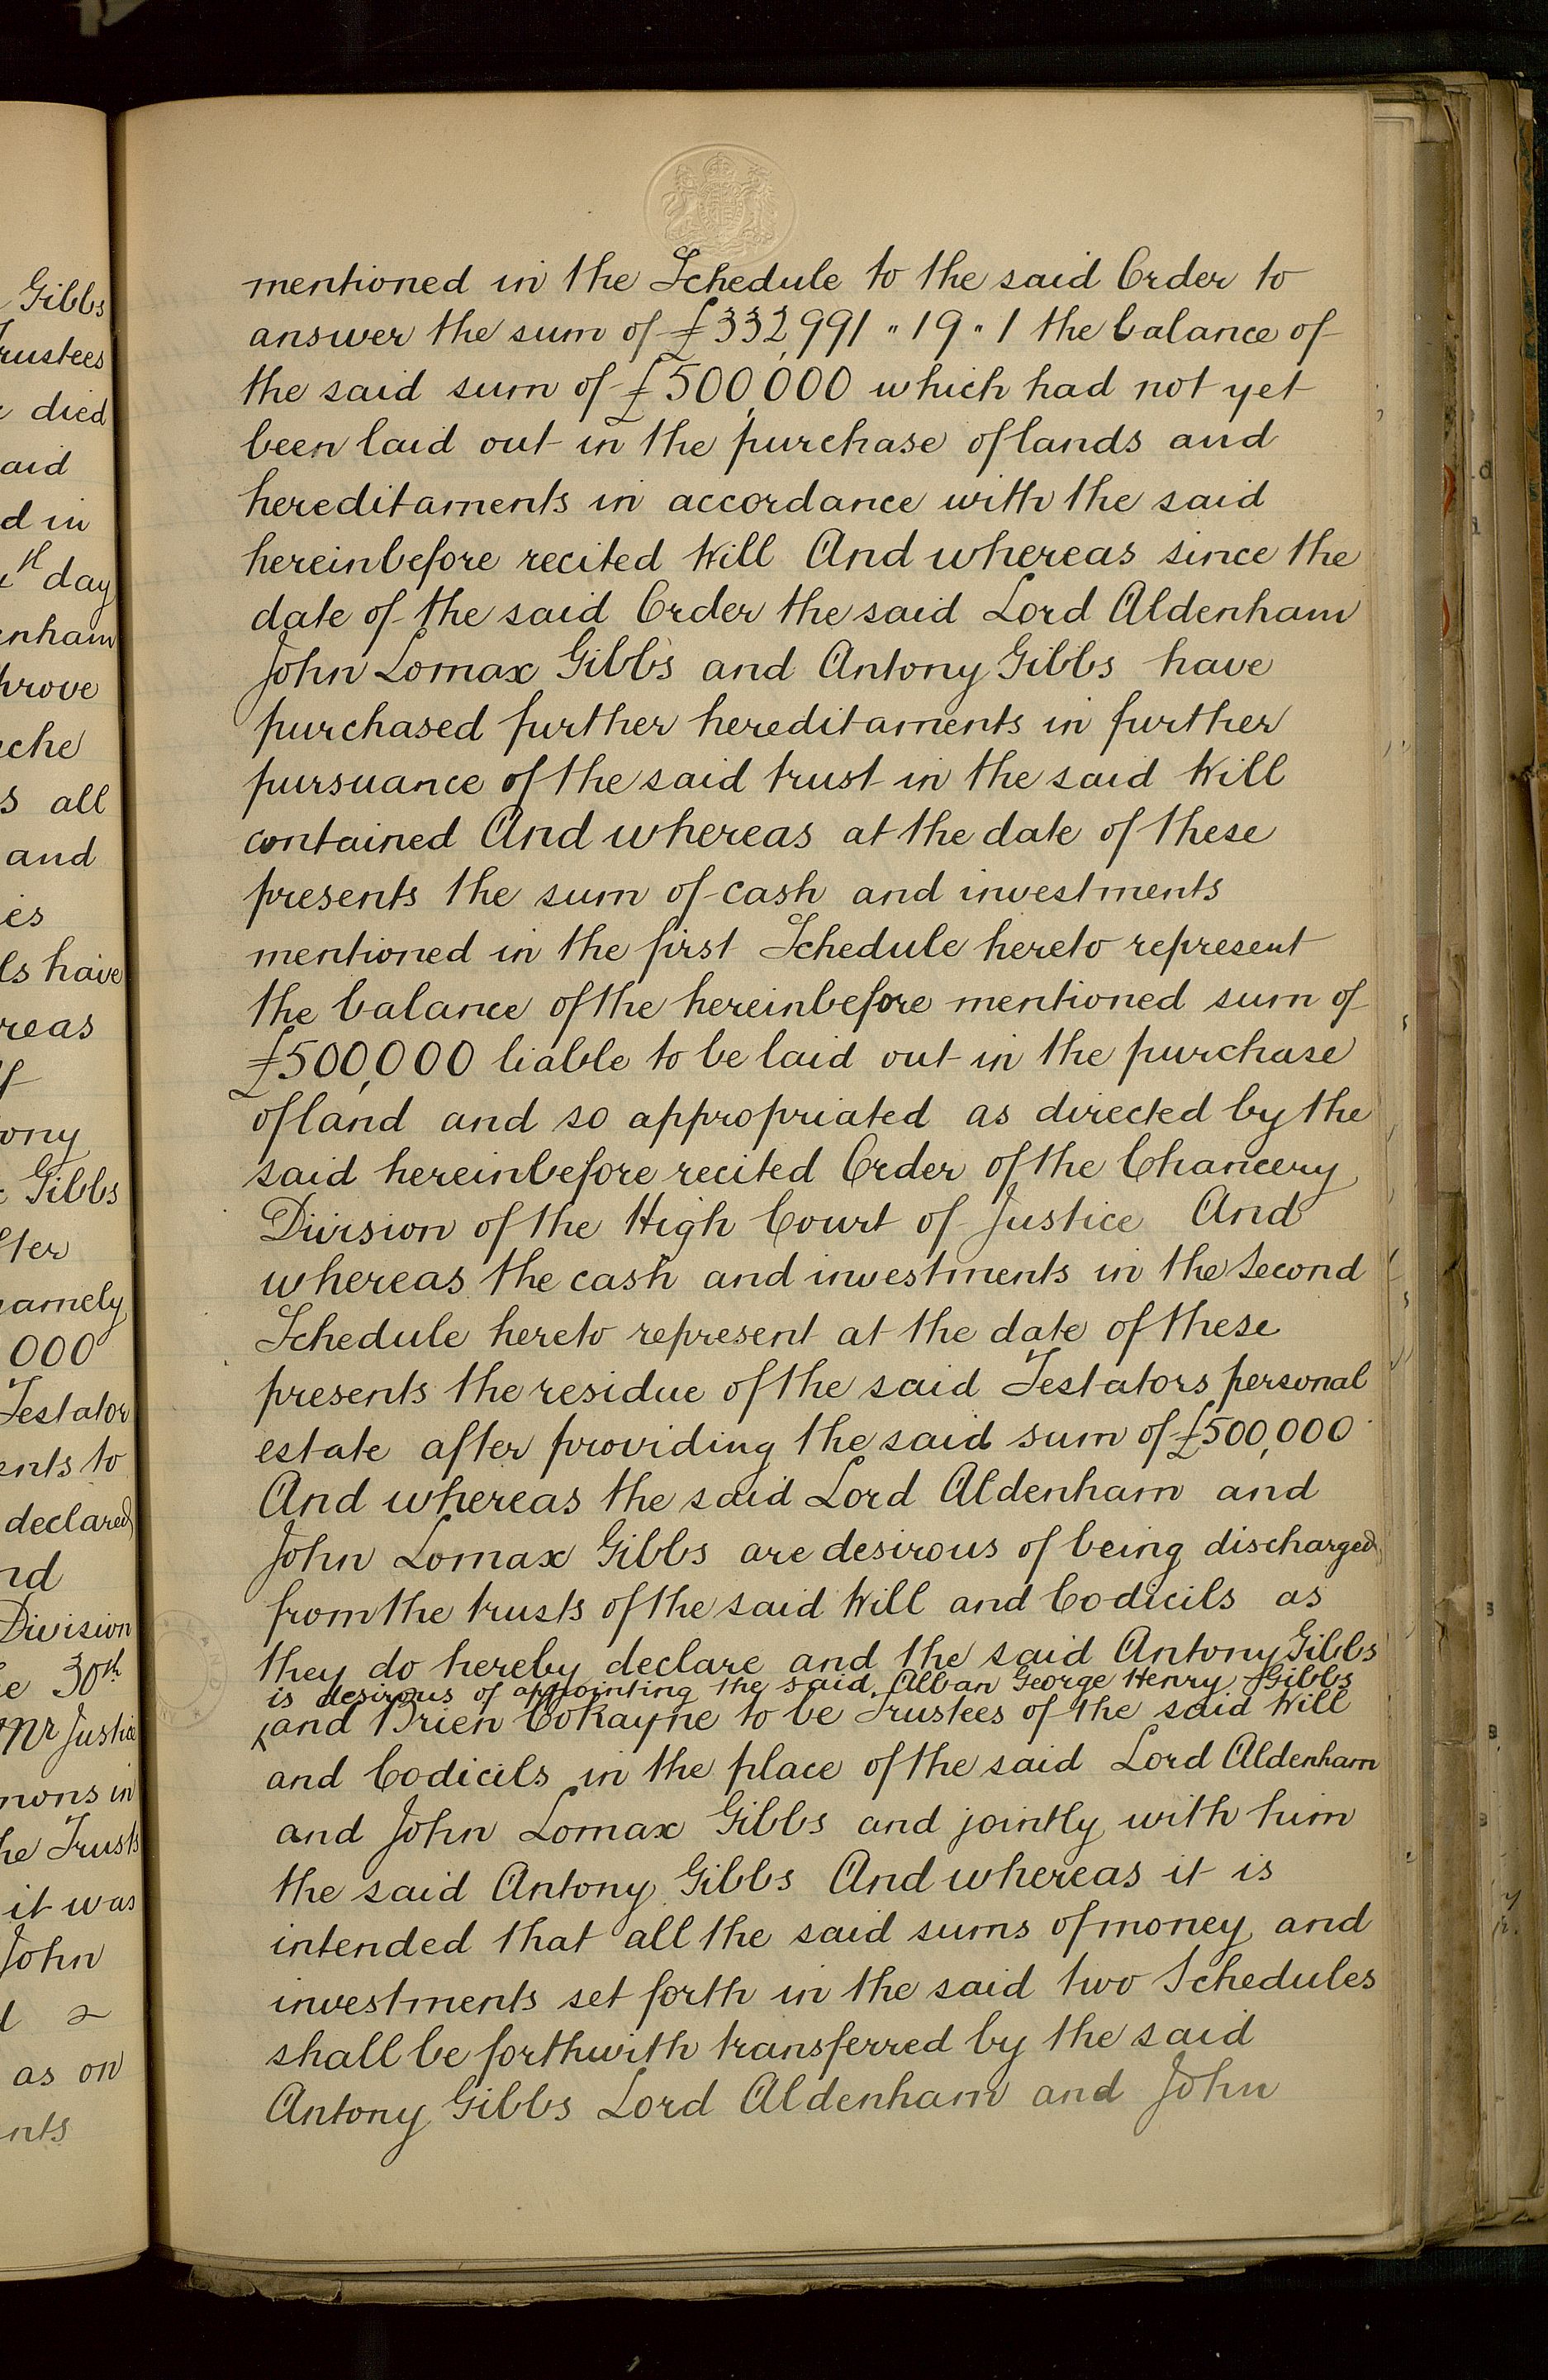 Gibbs
rustees
died
aid
d in
th day
enham
hrove
ache
s all
and
ies
ls have
reas
f
ony
Gibbs
ter
namely
000
Testator
ents to
declared
nd
Division
30th
Mr Justice
mons in
he Trusts
it was
John
as on
nts
mentioned in the Schedule to the said Order to
answer the sum of £332,991 " 19 " 1 the balance of
the said sum of £500,000 which had not yet
been laid out in the purchase of lands and
hereditaments in accordance with the said
hereinbefore recited Will And whereas since the
date of the said Order the said Lord Aldenham
John Lomax Gibbs and Antony Gibbs have
purchased further hereditaments in further
pursuance of the said trust in the said Will
contained And whereas at the date of these
presents the sum of cash and investments
mentioned in the first Schedule hereto represent
the balance of the hereinbefore mentioned sum of
£500,000 liable to be laid out in the purchase
of land and so appropriated as directed by the
said hereinbefore recited Order of the Chancery
Division of the High Court of Justice And
whereas the cash and investments in the Second
Schedule hereto represent at the date of these
presents the residue of the said Testators personal
estate after providing the said sum of £500,000
And whereas the said Lord Aldenham and
John Lomax Gibbs are desirous of being discharged
from the trusts of the said Will and Codicils as
they do hereby declare and the said Antony Gibbs
is desirous of appointing the said Alban George Henry Gibbs
and Brien Cokayne to be Trustees of the said Will
and Codicils in the place of the said Lord Aldenham
and John Lomax Gibbs and jointly with him
the said Antony Gibbs And whereas it is
intended that all the said sums of money and
investments set forth in the said two Schedules
shall be forthwith transferred by the said
Antony Gibbs Lord Aldenham and John